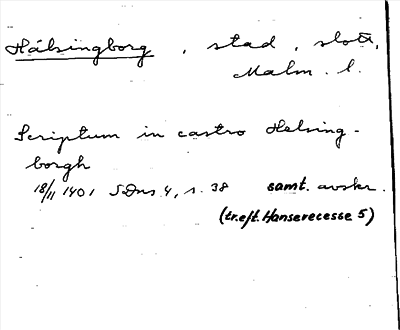 Hälsingborg, stad, slott,
Malm. l.
Scriptum in castro Helsing-
borgh
18/11 1401 SDns 4, s. 38 samt. avskr.
(tr. eft. Hanserecesse 5)